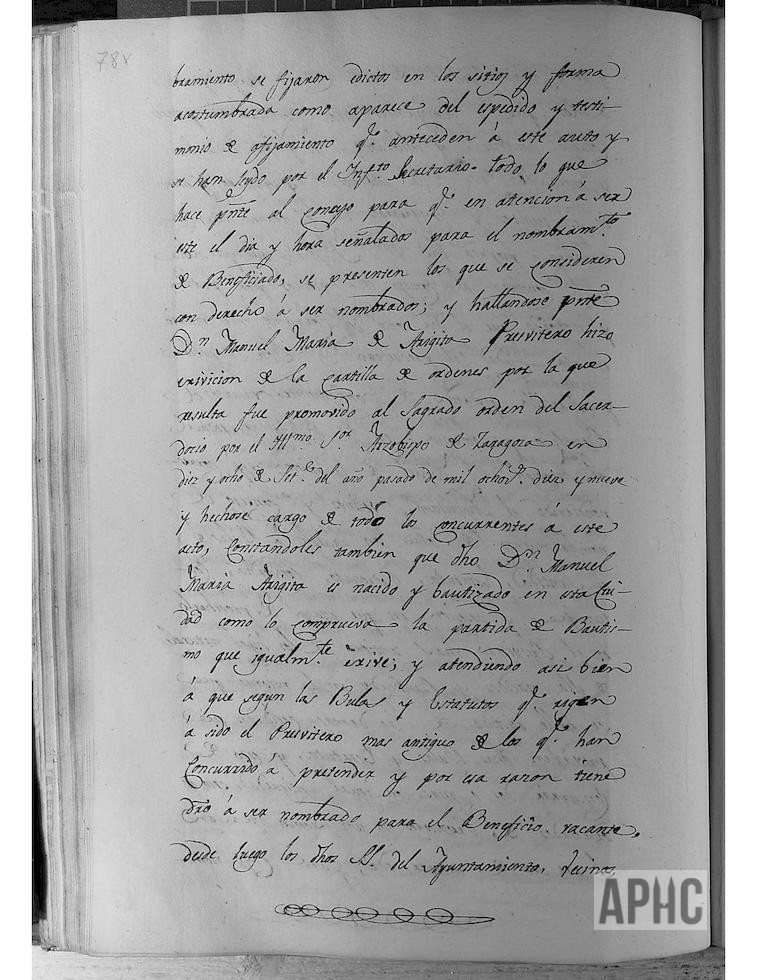 78v
bramiento se fijaron edictos en los sitios y forma
acostumbrada como aparece del espedido y testi-
monio de afijamiento q.e anteceden á este auto y
se han leydo por el Inf.to Secretario. todo lo que
hace pnte al concejo para q.e en atencion á ser
este el dia y hora señalados para el nombram.to
de Beneficiado, se presenten los que se consideren
con derecho á ser nombrados; y hallandose pnte
D.n Manuel Maria de Arigita Presvitero hizo
exivicion de la cartilla de ordenes por la que
resulta fue promovido al Sagrado orden del Sacer-
docio por el Ill.mo S.or Arzobispo de Zaragoza en
diez y ocho de Set.e del año pasado de mil ochoc.s diez y nueve
y hechose cargo de todo los concurrentes á este
acto, Constandoles tambien que dho D.n Manuel
Maria Arigita es nacido y bautizado en esta Ciu-
dad como lo comprueva la partida de Bautis-
mo que igualm.te exive; y atendiendo asi bien
á que segun las Bulas y Estatutos q.e rigen
á sido el Presvitero mas antiguo de los q.e han
Concurrido á pretender y por esa razon tiene
dro á ser nombrado para el Beneficio vacante.
desde luego los dhos SS. del Ayuntamiento, Vecinos,
APHC